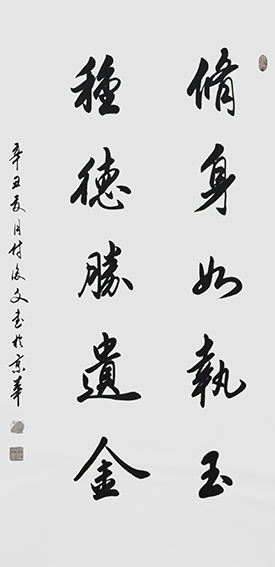 脩身如執玉
種德勝遺金
辛丑夏月付俊文書於京華